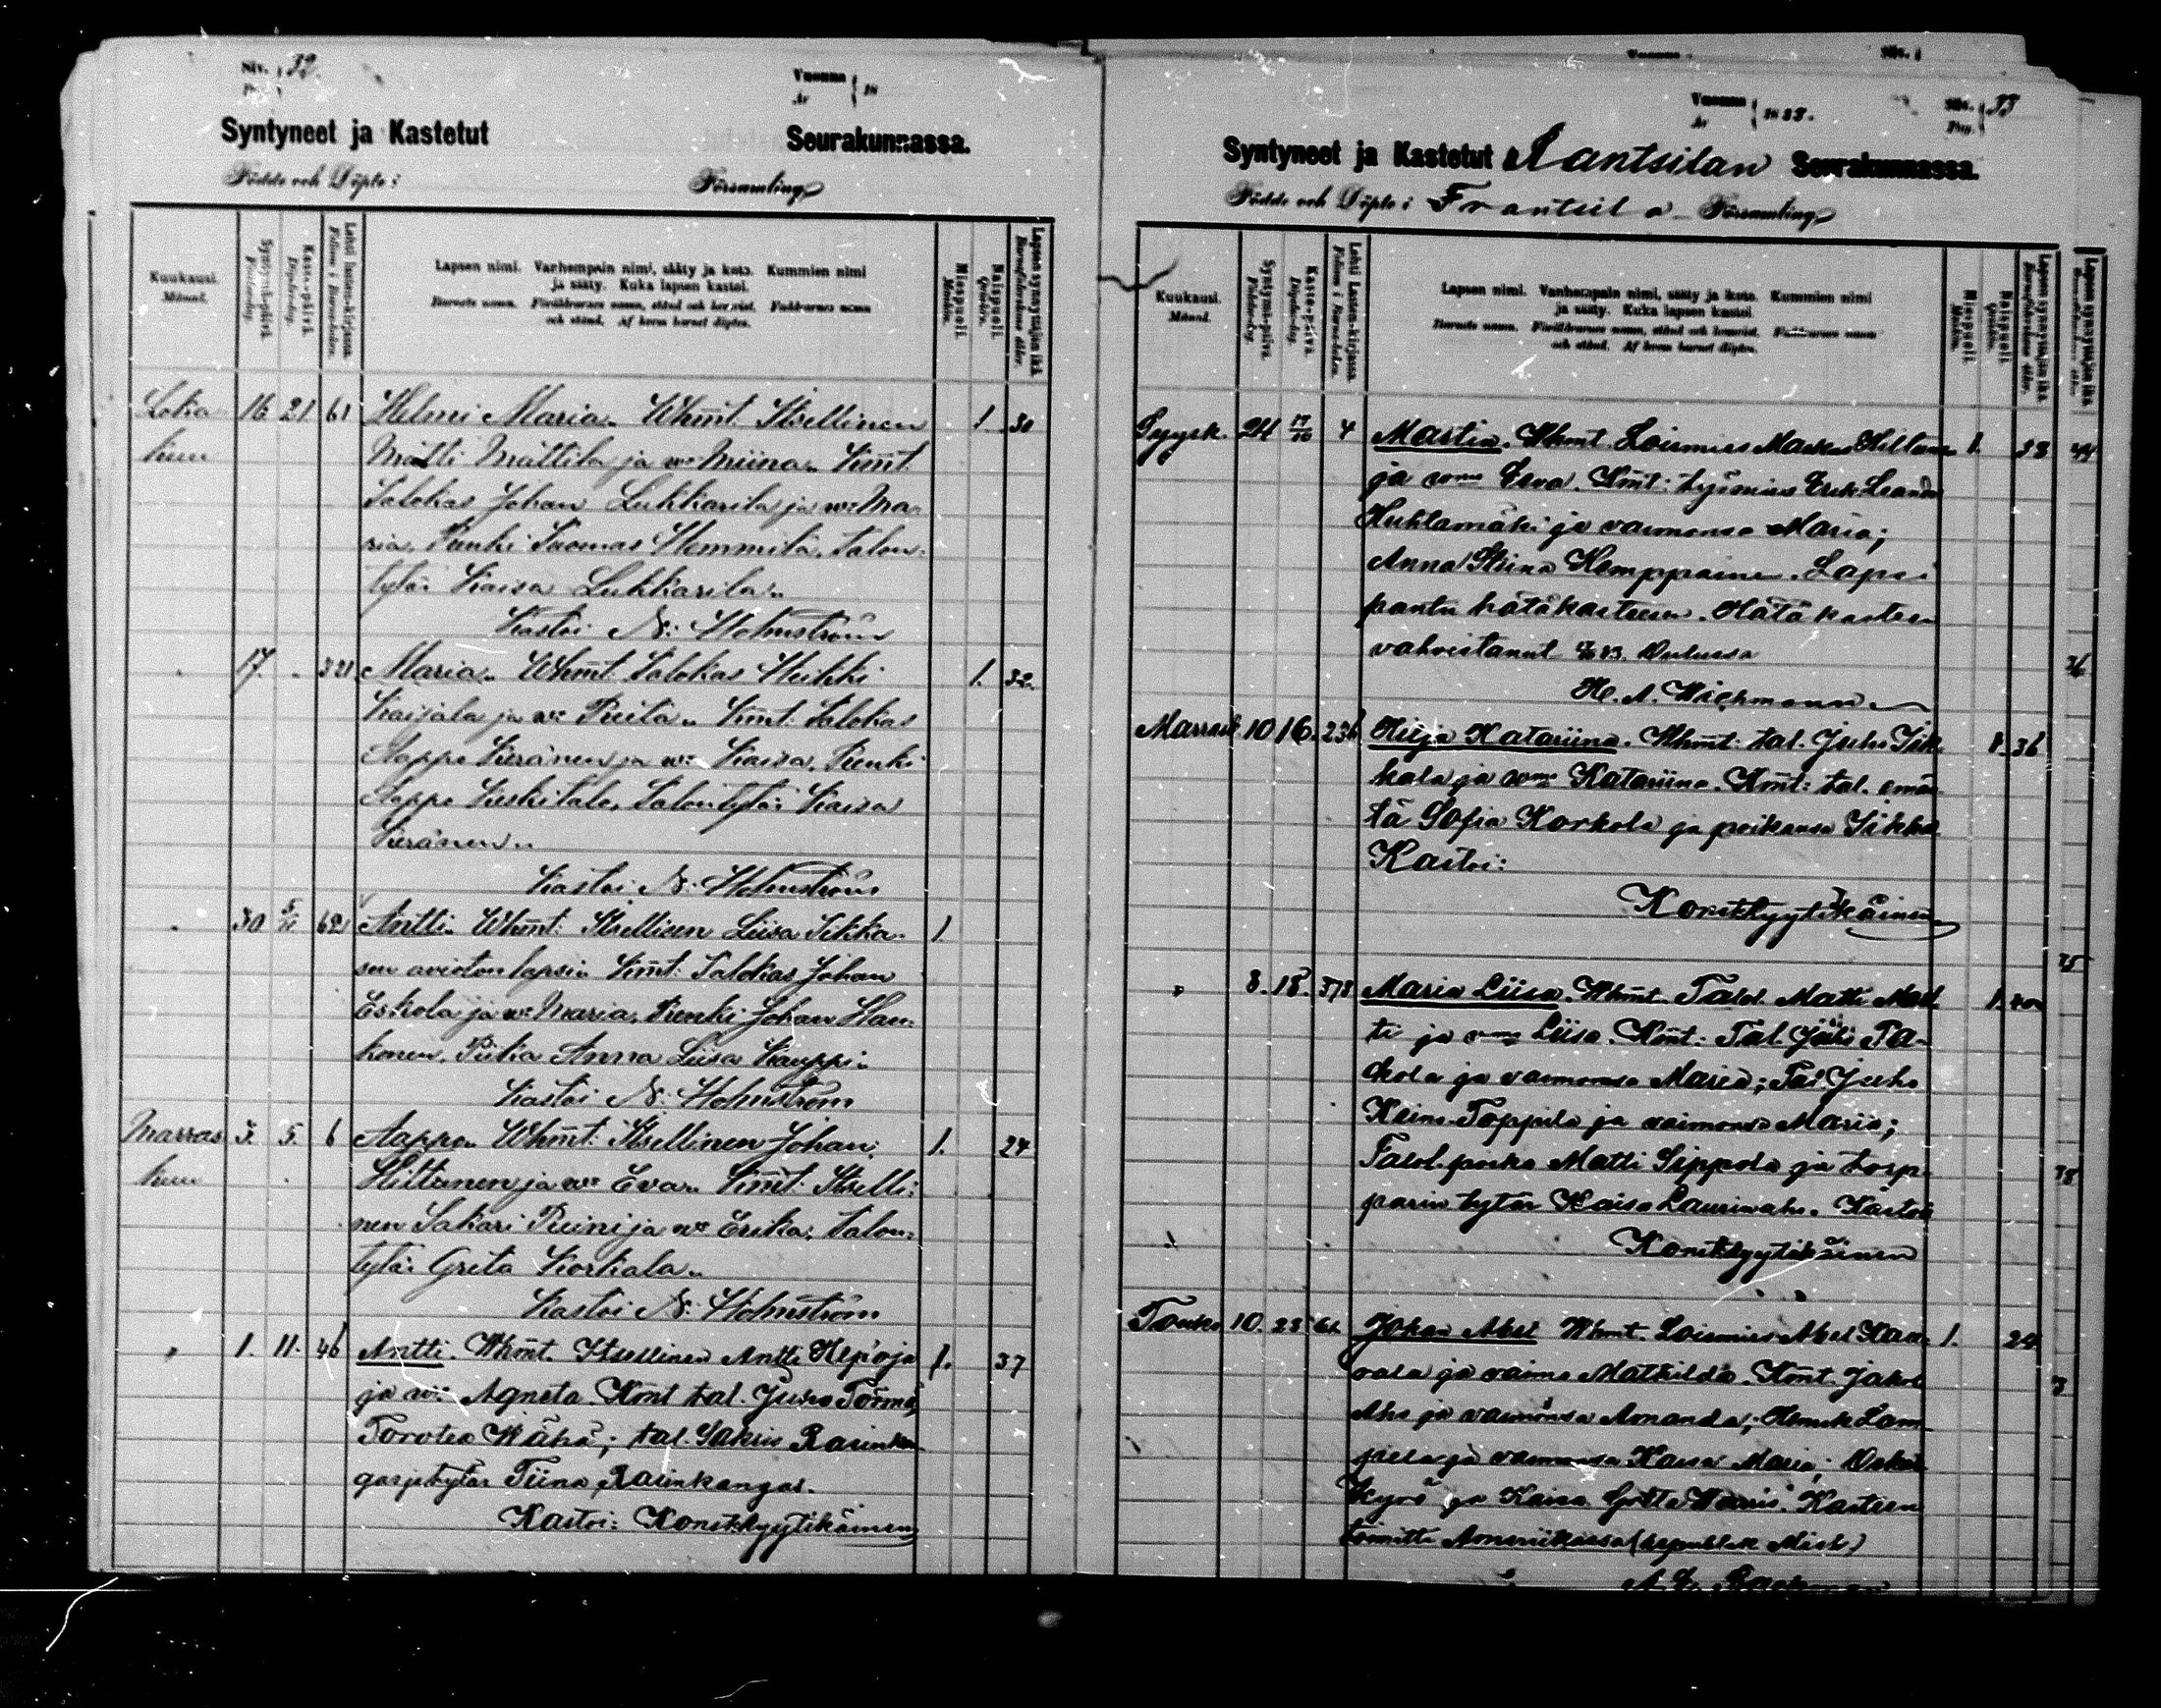 Siv. 32.
Vuonna 18
År
Syntyneet ja Kastetut Seurakunnassa.
Födde och Döpte i Församling
Kuukausi. Månad.
Syntymä-päivä. Födelse-dag.
Kaste-päivä. Döpelse-dag.
Lehti lasten-kirjassa
Lapsen nimi. Vanhempain nimi, sääty ja koto. Kummien nimi
ja sääty. Kuka lapsen kastoi.
Barnets namn. Föräldrarnes namn, stånd och hemvist. Faddrarnes namn
och stånd. Af hvem barnet döptes.
Miespuoli. Mankön.
Naispuoli. Qvinkön.
Lapsen synnyttäjän ikä.
Loka 16 21 61 Helmi Maria. Whmt. Itsellinen 1. 30
kuu Matti Mattila ja wo Miina. Kmt.
Talokas Johan Lukkarila ja wo Ma
ria, Renki Tuomas Hemmilä, talon
tytär Kaisa Lukkarila.
Kastoi N: Holmström
17. 321 Maria. Whmt Talokas Heikki 1. 32.
Kaijala ja wo Priita. Kmt: Talokas
Aappo Keränen ja wo Kaisa, Renki
Aappo Keskitalo, Talontytär Kaisa
Keränen.
Kastoi N: Holmström
30 5/11 62 Antti. Whmt: Itsellisen Liisa Sikka- 1.
sen avioton lapsi. Kmt: Talokas Johan
Eskola ja wo Maria, Renki Johan Han-
konen, Piika Anna Liisa Kauppi.
Kastoi N: Holmström
Marras 3. 5. 6 Aappo. Whmt: Itsellinen Johan 1. 24
kuu Hiltunen ja wo Eva. Kmt: Itselli-
nen Sakari Reini ja wo Erika, talon
tytär Greta Korkala.
Kastoi N: Holmström
" 1. 11. 46 Antti. Whmt. Itsellinen Antti Hepoja 1. 37
ja wo Agneta. Kmt tal. Juho Törmä,
Torotea Wähä; tal. Sakris Rasinkan
gas ja tytär Tiina Rasinkangas.
Kastoi: Konst. Kyytikäinen
Vuonna 1888. Siv. 33
År Pag.
Syntyneet ja Kastetut Rantsilan Seurakunnassa.
Födde och Döpte i Frantsila Församling
Kuukausi. Månad.
Syntymä-päivä. Födelse-dag.
Kaste-päivä. Döpelse-dag.
Lehti Lasten-kirjassa
Lapsen nimi. Vanhempain nimi, sääty ja koto. Kummien nimi
ja sääty. Kuka lapsen kastoi.
Barnets namn. Föräldrarnes namn, stånd och hemvist. Faddrarnes namn
och stånd. Af hvem barnet döptes.
Miespuoli. Mankön.
Naispuoli. Qvinkön.
Lapsen synnyttäjän ikä
Syysk. 24 4 Martin. Whmt. Loismies Markus Hiltunen 1. 38
ja vmo Eeva. Kmt: työmies Erik Leander
Huhtamäki ja vaimonsa Maria;
Anna Stiina Kemppainen. Lapsi
pantu hätäkasteesen. Hätäkasteen
vahvistanut Oulussa
H. A. Wichmann
Marrask. 10 16. 236 Hilja Katariina. Whmt: tal. Juho Sik 1. 36
kala ja vmo Katariina. Kmt: tal. emän
tä Sofia Korkola ja poikansa Sikka
Kastoi:
Konst. Kyytikäinen
" 8. 18. 378 Maria Liisa. Whmt. Talol. Matti Mat 1. 40
ti ja vmo Liisa. Kmt: Tal. Juho Pa-
kola ja vaimonsa Maria; Tal. Juho
Keino-Toppila ja vaimonsa Maria;
Talol. poika Matti Sippola ja torp-
parin tytär Kaisa Laurinaho. Kastoi
Konst. Kyytikäinen
Touko 10. 23 Johan Abel Whmt. Loismies Abel 1. 24
vala ja vaimo Mathilda. Kmt. Jakob
Aho ja vaimonsa Amanda; Henrik Lam
piela ja vaimonsa Kaisa Maria; Oskar
Kyrö ja Kaisa Gretta Kasteen
toimitti Ameriikassa (Republik Mich)